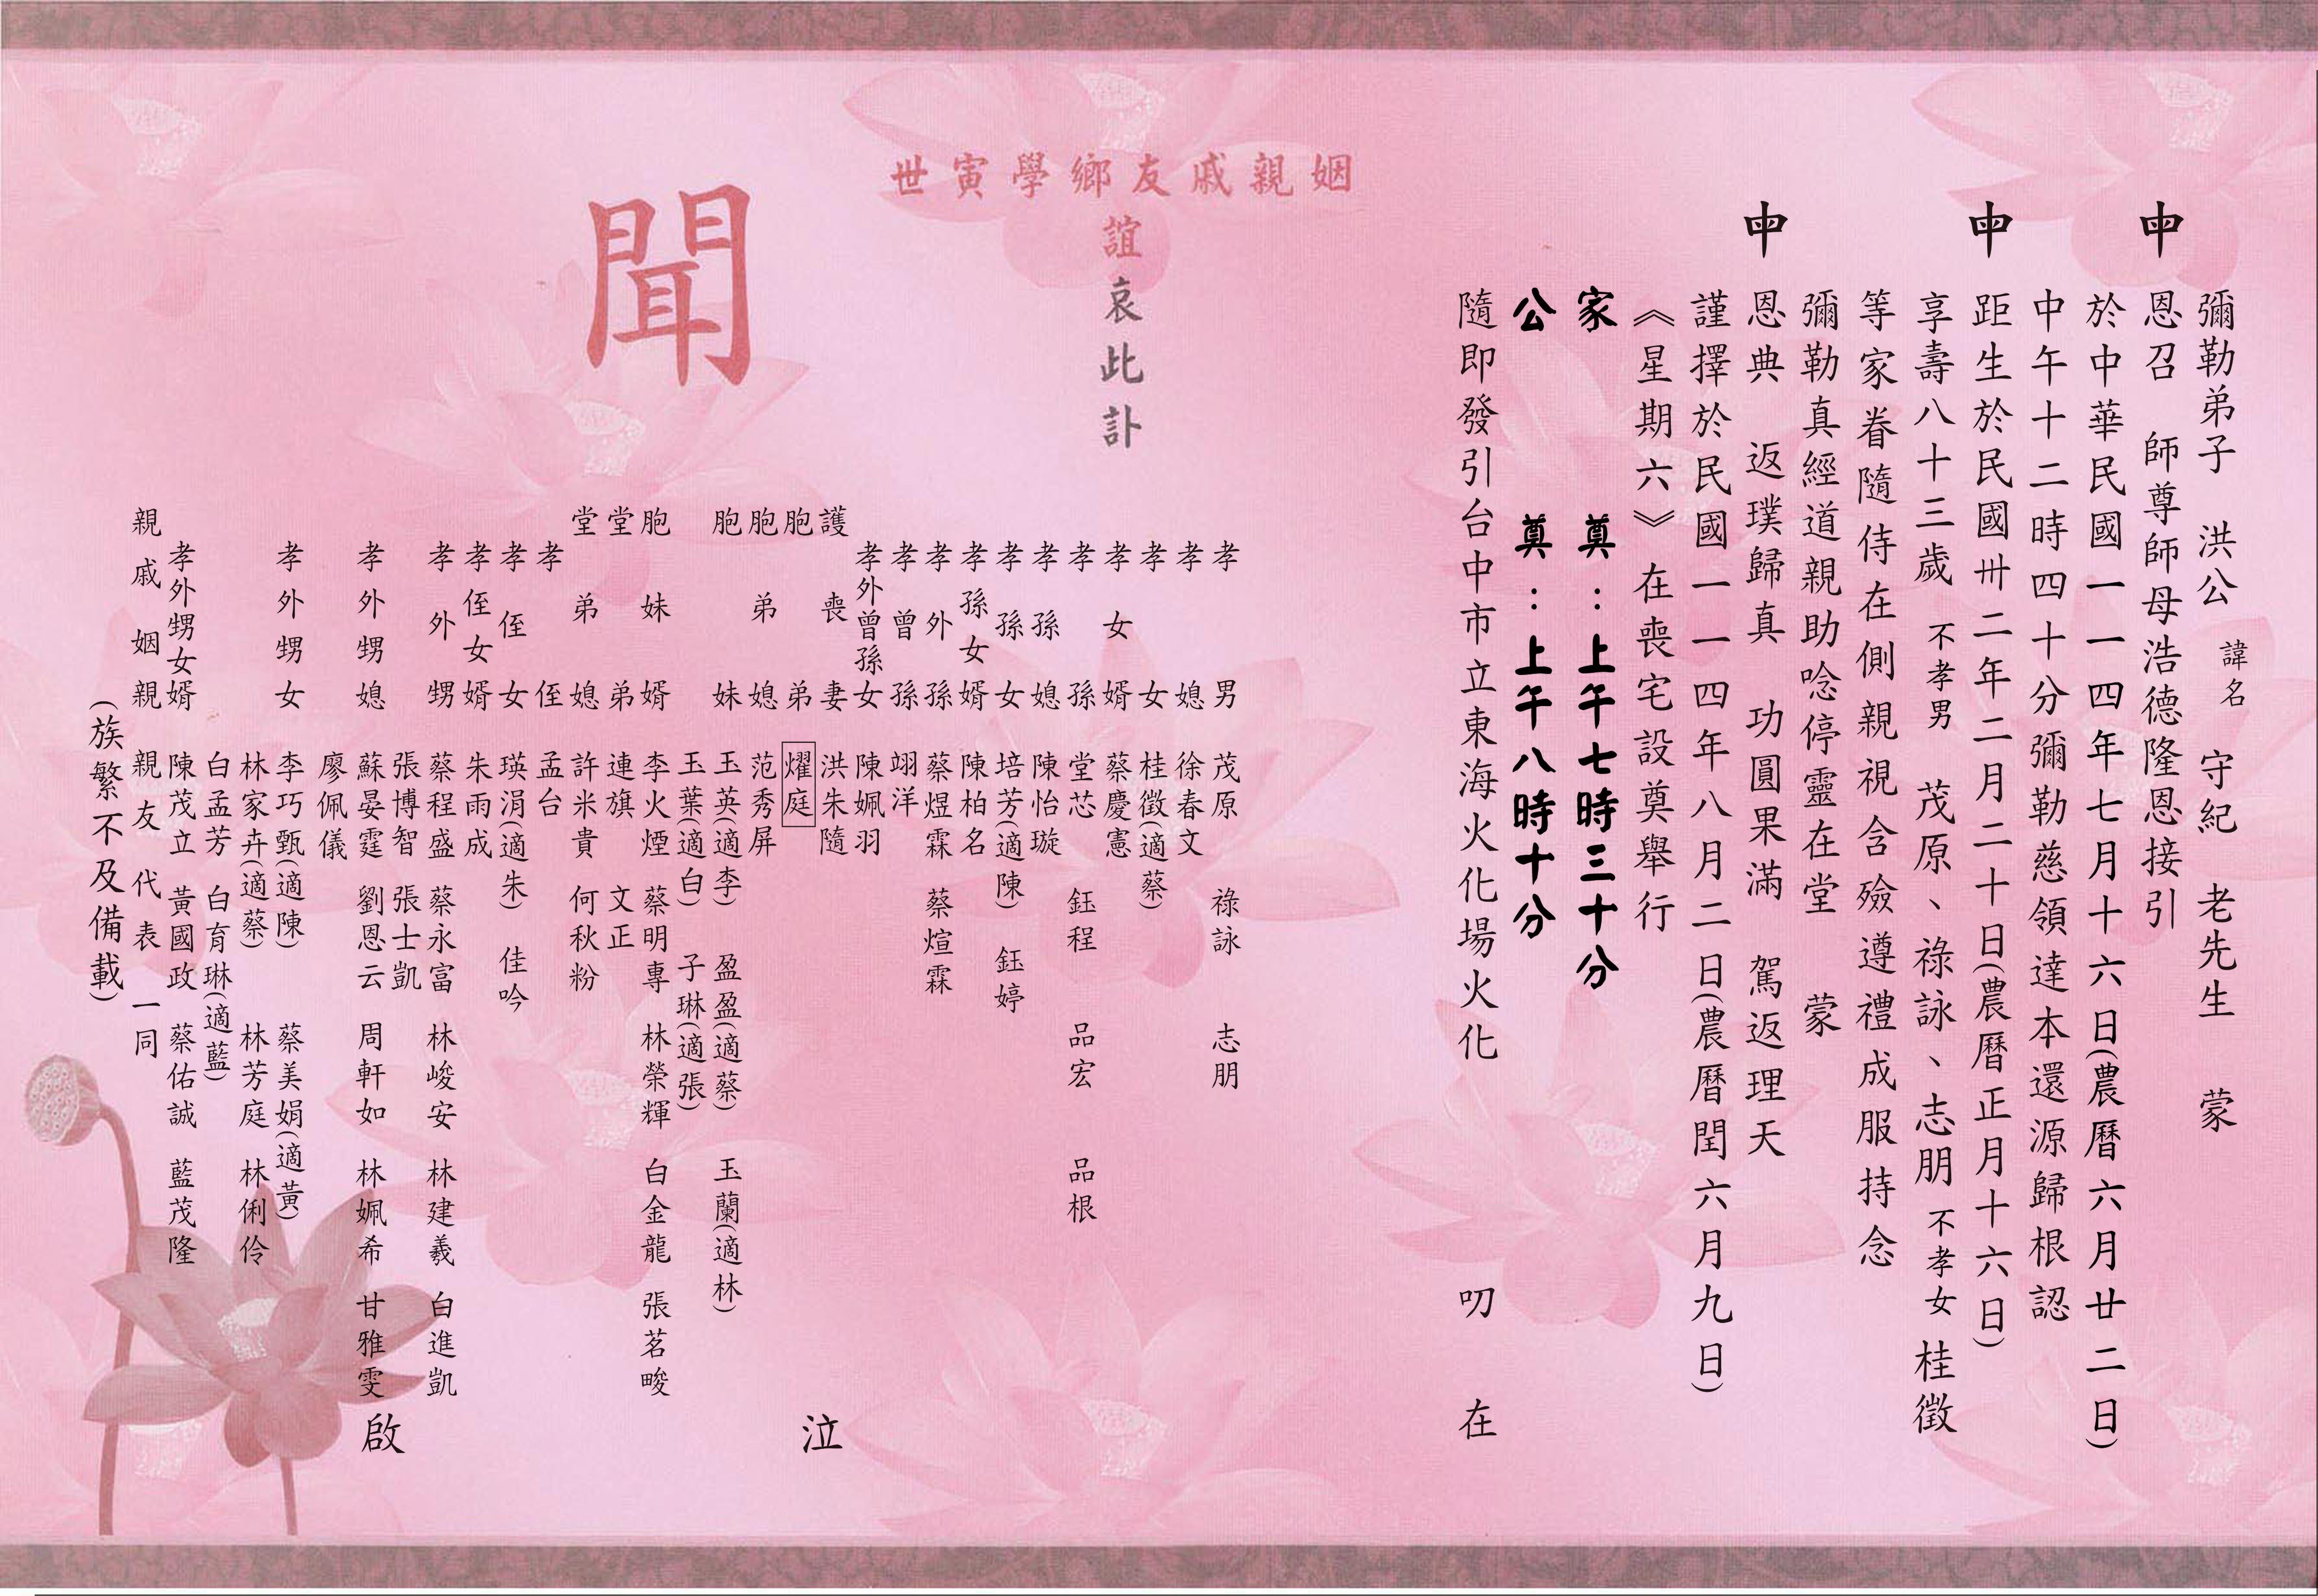 彌勒弟子 洪公 諱名 守紀 老先生 蒙
申
恩召 師尊師母浩德隆恩接引
於中華民國一一四年七月十六日(農曆六月廿二日)
中午十二時四十分彌勒慈領達本還源歸根認
申
距生於民國卅二年二月二十日(農曆正月十六日)
享壽八十三歲 不孝男 茂原、祿詠、志朋 不孝女 桂徵
等家眷隨侍在側親視含殮遵禮成服持念
彌勒真經道親助唸停靈在堂 蒙
申
恩典 返璞歸真 功圓果滿 駕返理天
謹擇於民國一一四年八月二日(農曆閏六月九日)
《星期六》在喪宅設奠舉行
家 奠:上午七時三十分
公 奠:上午八時十分
隨即發引台中市立東海火化場火化 叨 在
姻親戚友鄉學寅世
誼哀此訃
聞
孝男 茂原 祿詠 志朋
孝媳 徐春文
孝女 桂徵(適蔡)
孝女婿 蔡慶憲
孝孫 堂芯 鈺程 品宏 品根
孝孫媳 陳怡璇
孝孫女 培芳(適陳) 鈺婷
孝孫女婿 陳柏名
孝外孫 蔡煜霖 蔡煊霖
孝曾孫 翊洋
孝外曾孫女 陳姵羽
護喪妻 洪朱隨
胞弟 燿庭
胞弟媳 范秀屏
胞妹 玉英(適李) 盈盈(適蔡) 玉蘭(適林)
玉葉(適白) 子琳(適張)
胞妹婿 李火煙 蔡明專 林榮輝 白金龍 張茗畯
堂弟 連旗 文正
堂弟媳 許米貴 何秋粉
孝侄 孟台
孝侄女 瑛涓(適朱) 佳吟
孝侄女婿 朱雨成
孝外甥 蔡程盛 蔡永富 林峻安 林建羲 白進凱
張博智 張士凱
孝外甥媳 蘇晏霆 劉恩云 周軒如 林姵希 甘雅雯
廖佩儀
孝外甥女 李巧甄(適陳) 蔡美娟(適黃)
林家卉(適蔡) 林芳庭 林俐伶
白孟芳 白育琳(適藍)
孝外甥女婿 陳茂立 黃國政 蔡佑誠 藍茂隆
親戚姻親 親友代表一同
(族繁不及備載)
泣
啟